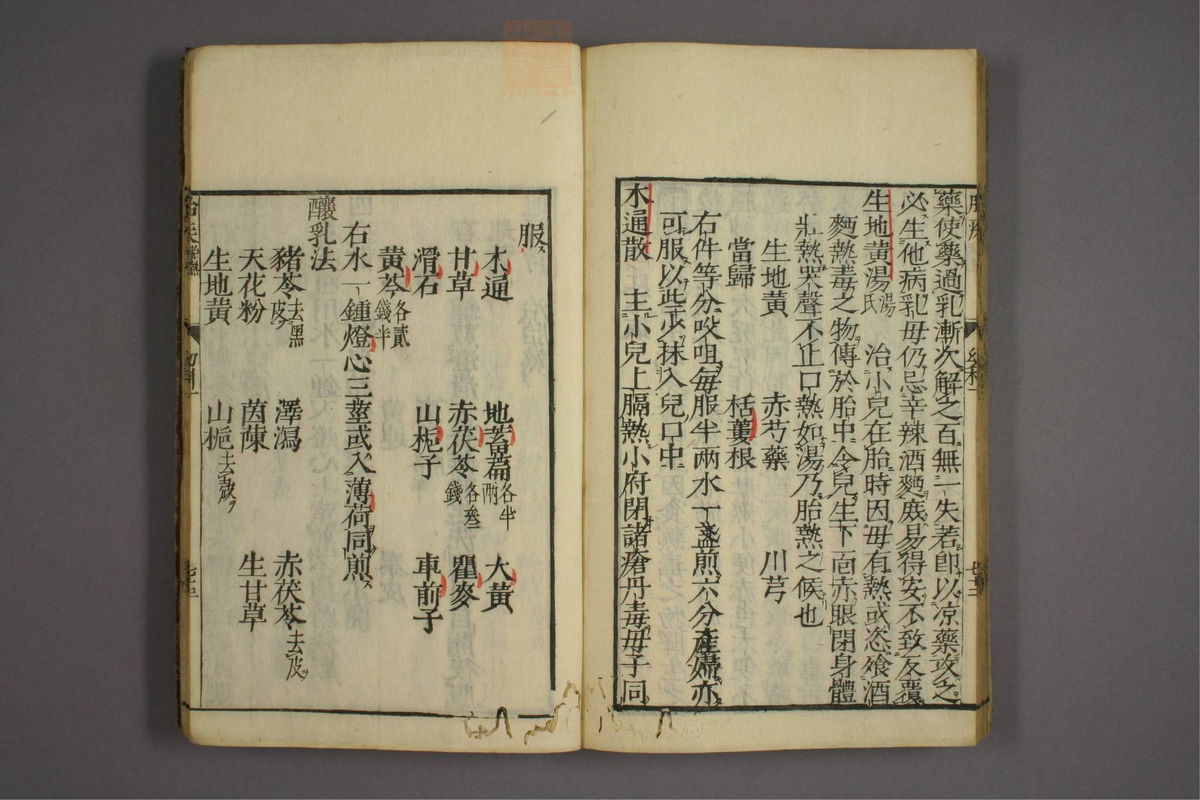 藥使藥過乳漸次解之百無一失若即以凉藥攻之
必生他病乳母仍忌辛辣酒麪庶易得安不致反覆
生地黄湯湯氏　治小兒在胎時因母有熱或恣飡酒
麪熱毒之物傳於胎中令兒生下面赤眼閉身體
壯熱哭聲不止口熱如湯乃胎熱之候也
生地黄　赤芍藥　川芎
當歸　栝蔞根
右件等分㕮咀每服半兩水一盞煎六分產婦亦
可服以些少抹入兒口中
木通散　主小兒上膈熱小府閉諸瘡丹毒母子同
服
木通　地萹蓄各半兩　大黄
甘草　赤茯苓各叁錢　瞿麥
滑石　山梔子　車前子
黄芩各貳錢半
右水一鍾燈心三莖或入薄荷同煎
釀乳法
豬苓去黑皮　澤瀉　赤茯苓去皮
天花粉　茵蔯　生甘草
生地黄　山梔去殼
幼科一
七十三